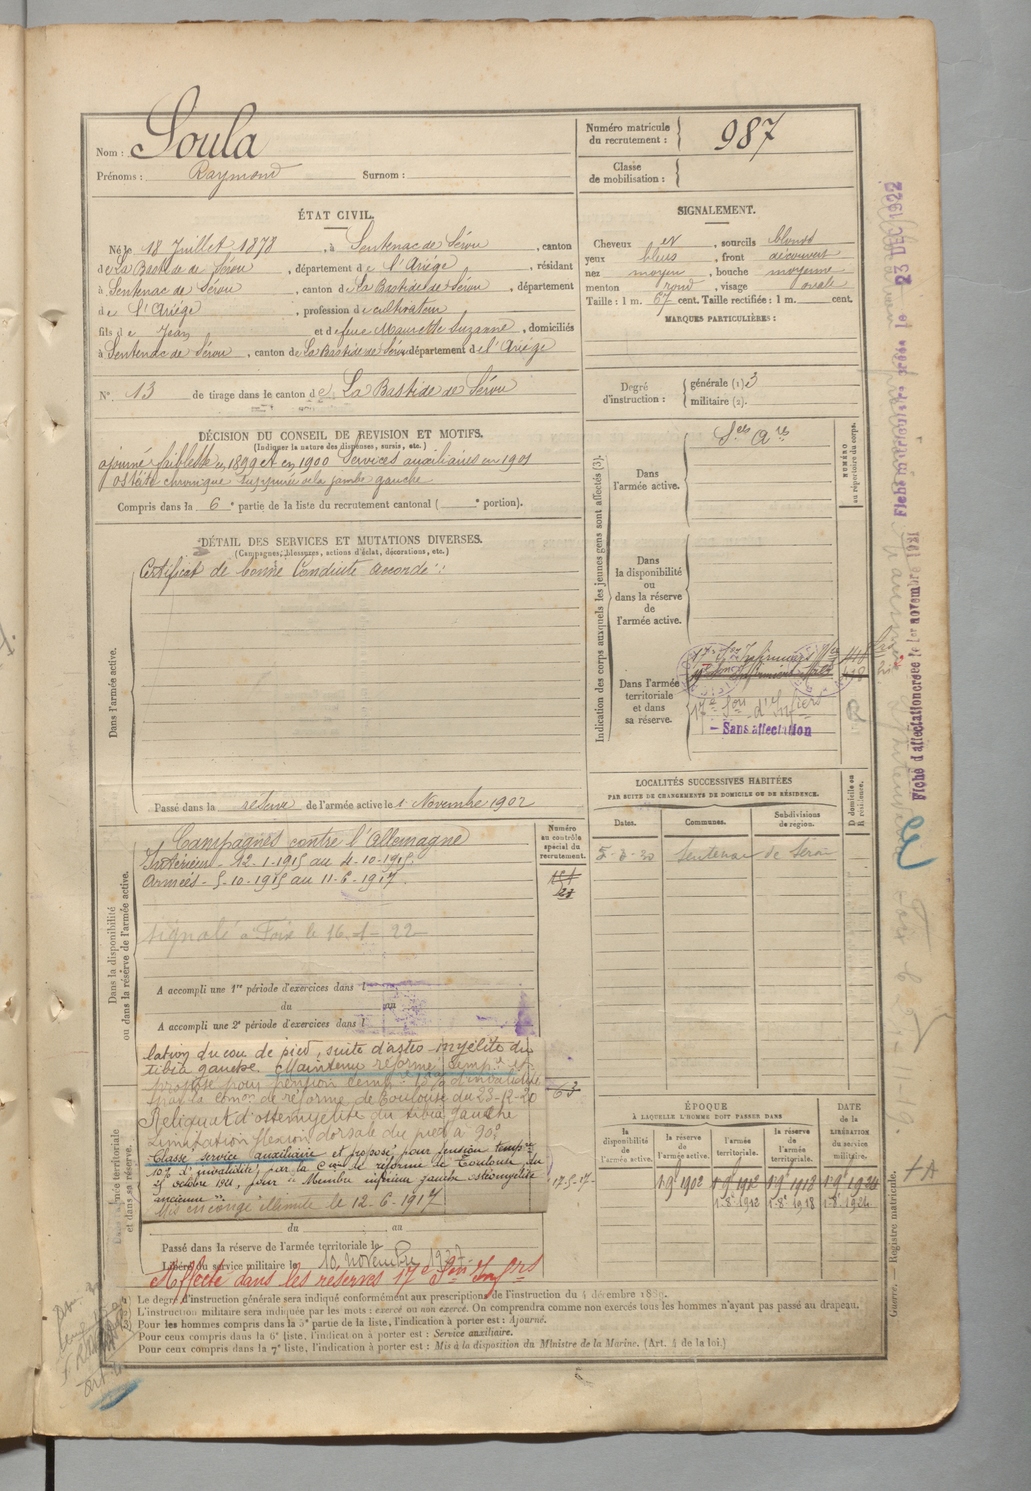 Nom : Soula
Prénoms : Raymond Surnom :
Numéro matricule du recrutement : 987
Classe de mobilisation :
ÉTAT CIVIL.
Né le 18 Juillet 1878, à Sentenac de Sérou, canton
de La Bastide de Sérou, département de l'Ariége, résidant
à Sentenac de Sérou, canton de La Bastide de Sérou, département
de l'Ariége, profession de cultivateur
fils de Jean et de feue Maurette Suzanne, domiciliés
à Sentenac de Sérou, canton de La Bastide de Sérou département de l'Ariége
N° 13 de tirage dans le canton de La Bastide de Sérou
SIGNALEMENT.
Cheveux et, sourcils blonds
yeux bleus, front découvert
nez moyen, bouche moyenne
menton rond, visage ovale
Taille : 1 m. 67 cent. Taille rectifiée : 1 m. cent.
MARQUES PARTICULIÈRES :
Degré d'instruction : générale (1) 3
militaire (2).
DÉCISION DU CONSEIL DE REVISION ET MOTIFS.
(Indiquer la nature des dispenses, sursis, etc.)
ajourné faiblesse en 1899 et en 1900 Services auxiliaires en 1901
ostéite chronique suppurée de la jambe gauche
Compris dans la 6e partie de la liste du recrutement cantonal ( e portion).
DÉTAIL DES SERVICES ET MUTATIONS DIVERSES.
(Campagnes, blessures, actions d'éclat, décorations, etc.)
Dans l'armée active.
Certificat de bonne Conduite accordé
Passé dans la réserve de l'armée active le 1 Novembre 1902
Indication des corps auxquels les jeunes gens sont affectés (3).
NUMÉRO au répertoire du corps.
Dans l'armée active.
Ses Ares
Dans la disponibilité ou dans la réserve de l'armée active.
Dans l'armée territoriale et dans sa réserve.
17e Son d'Infiers
- Sans affectation
LOCALITÉS SUCCESSIVES HABITÉES
PAR SUITE DE CHANGEMENTS DE DOMICILE OU DE RÉSIDENCE.
Dates. Communes. Subdivisions de région. D domicile ou R résidence.
Sentenac de Serou
Dans la disponibilité ou dans la réserve de l'armée active.
Numéro au contrôle spécial du recrutement.
Campagnes contre l'Allemagne
Intérieur - 12-1-1915 au 4-10-1915
Armées - 5-10-1915 au 11-6-1917
signalé à Foix le 16-1-22
A accompli une 1re période d'exercices dans l
du au
A accompli une 2e période d'exercices dans l
lation du cou de pied, suite d'ostéo-myélite du
tibia gauche. Maintenu réformé temp. et
proposé pour pension temp. 10 % d'invalidité
par la Comon de réforme de Toulouse du 23-12-20
Reliquat d'ostéomyélite du tibia gauche
Limitation flexion dorsale du pied à 90°
Classé service auxiliaire et proposé pour pension tempre
10% d'invalidité, par la Con de réforme de Toulouse du
25 octobre 1921, pour "Membre inférieur gauche ostéomyélite
ancienne".
Mis en congé illimité le 12-6-1917
63
du au
Passé dans la réserve de l'armée territoriale le
Libéré du service militaire le 10 novembre 1927
Affecté dans les réserves 17e Son Infrs
ÉPOQUE
À LAQUELLE L'HOMME DOIT PASSER DANS
DATE DE LA LIBÉRATION du service militaire.
la disponibilité de l'armée active. la réserve de l'armée active. l'armée territoriale. la réserve de l'armée territoriale.
1-9 1902 1-9 1912 1-9 1918 1-9 1924
1-8 1912 1-8 1918 1-8 1924
(1) Le degré d'instruction générale sera indiqué conformément aux prescriptions de l'instruction du 4 décembre 1889.
(2) L'instruction militaire sera indiquée par les mots : exercé ou non exercé. On comprendra comme non exercés tous les hommes n'ayant pas passé au drapeau.
(3) Pour les hommes compris dans la 5e partie de la liste, l'indication à porter est : Ajourné.
Pour ceux compris dans la 6e liste, l'indication à porter est : Service auxiliaire.
Pour ceux compris dans la 7e liste, l'indication à porter est : Mis à la disposition du Ministre de la Marine. (Art. 4 de la loi.)
Guerre. — Registre matricule.
Fiche matriculaire prése le 23 DEC 1922
Fiche d'affectation créée le 1er novembre 1921